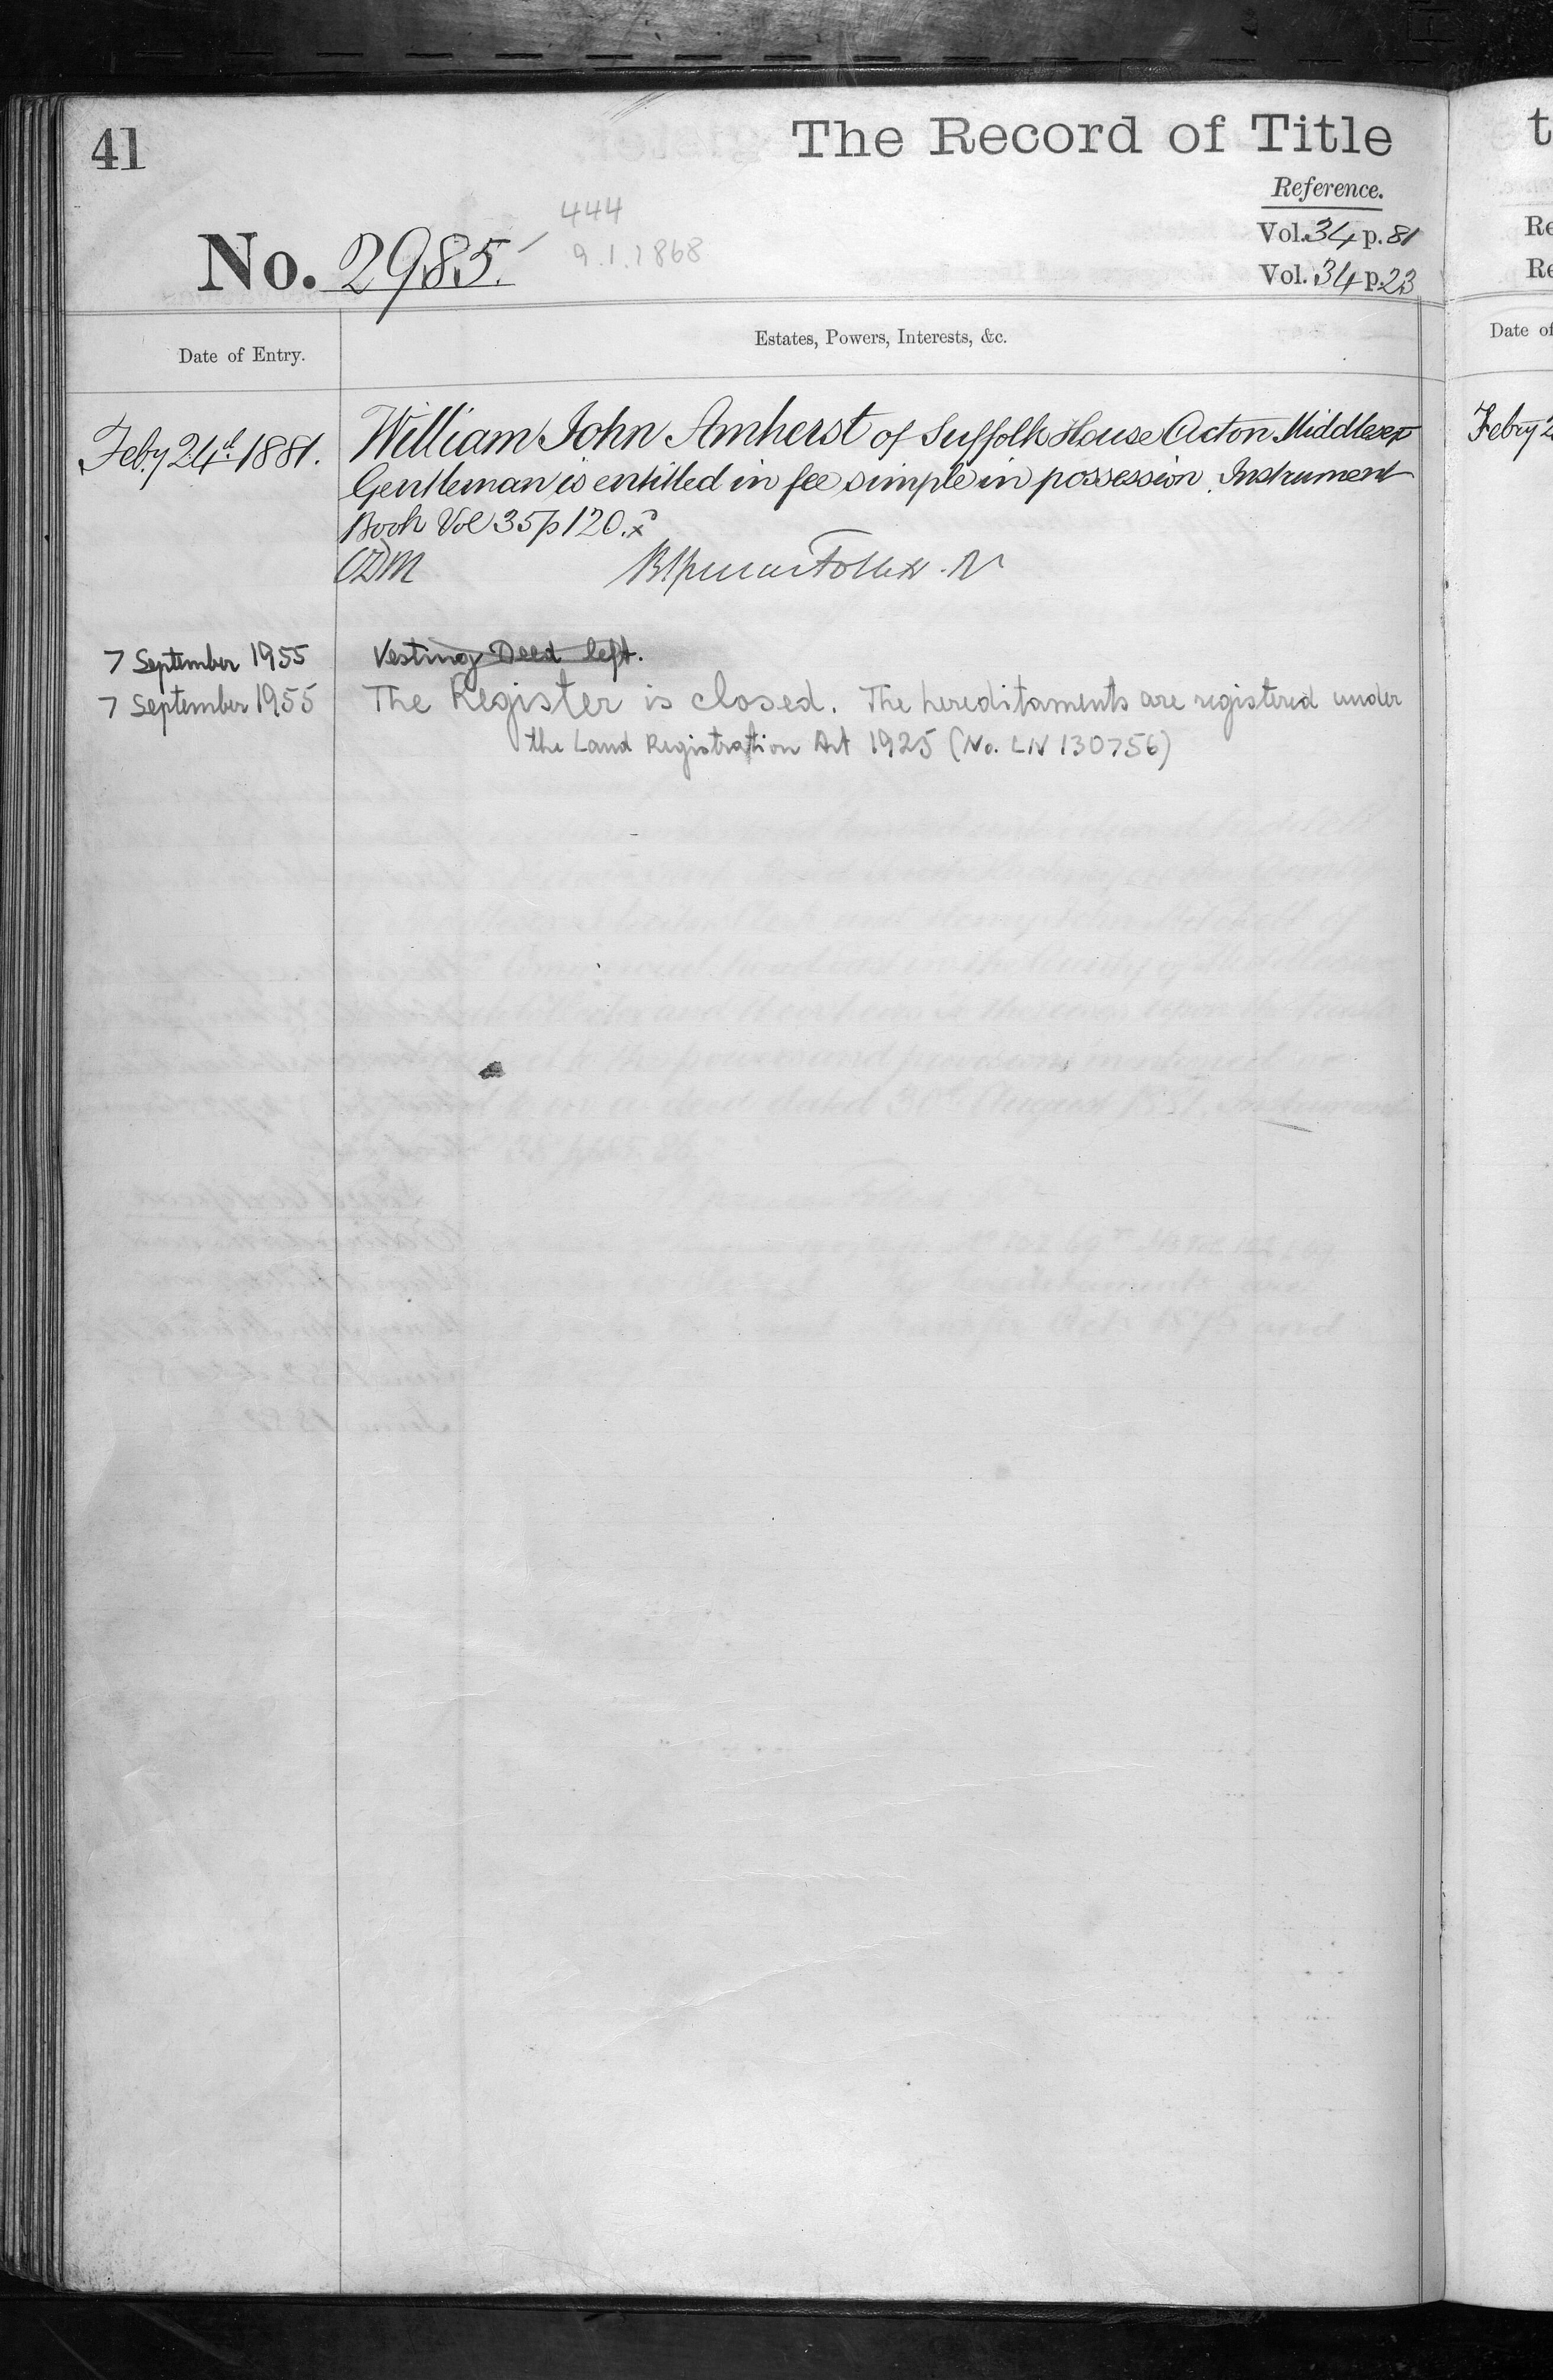 41
The Record of Title
Reference.
No. 2985.
444
9.1.1868
Vol. 34 p. 81
Vol. 34 p. 23
Date of Entry.
Estates, Powers, Interests, &c.
Feby 24th 1881.
William John Amherst of Suffolk House Acton Middlesex
Gentleman is entitled in fee simple in possession. Instrument
Book Vol 35 p 120.
7 September 1955
Vesting Deed left.
7 September 1955
The Register is closed. The hereditaments are registered under
the Land Registration Act 1925 (No. LN 130756)
t
Re
Re
Date of
Febry 2